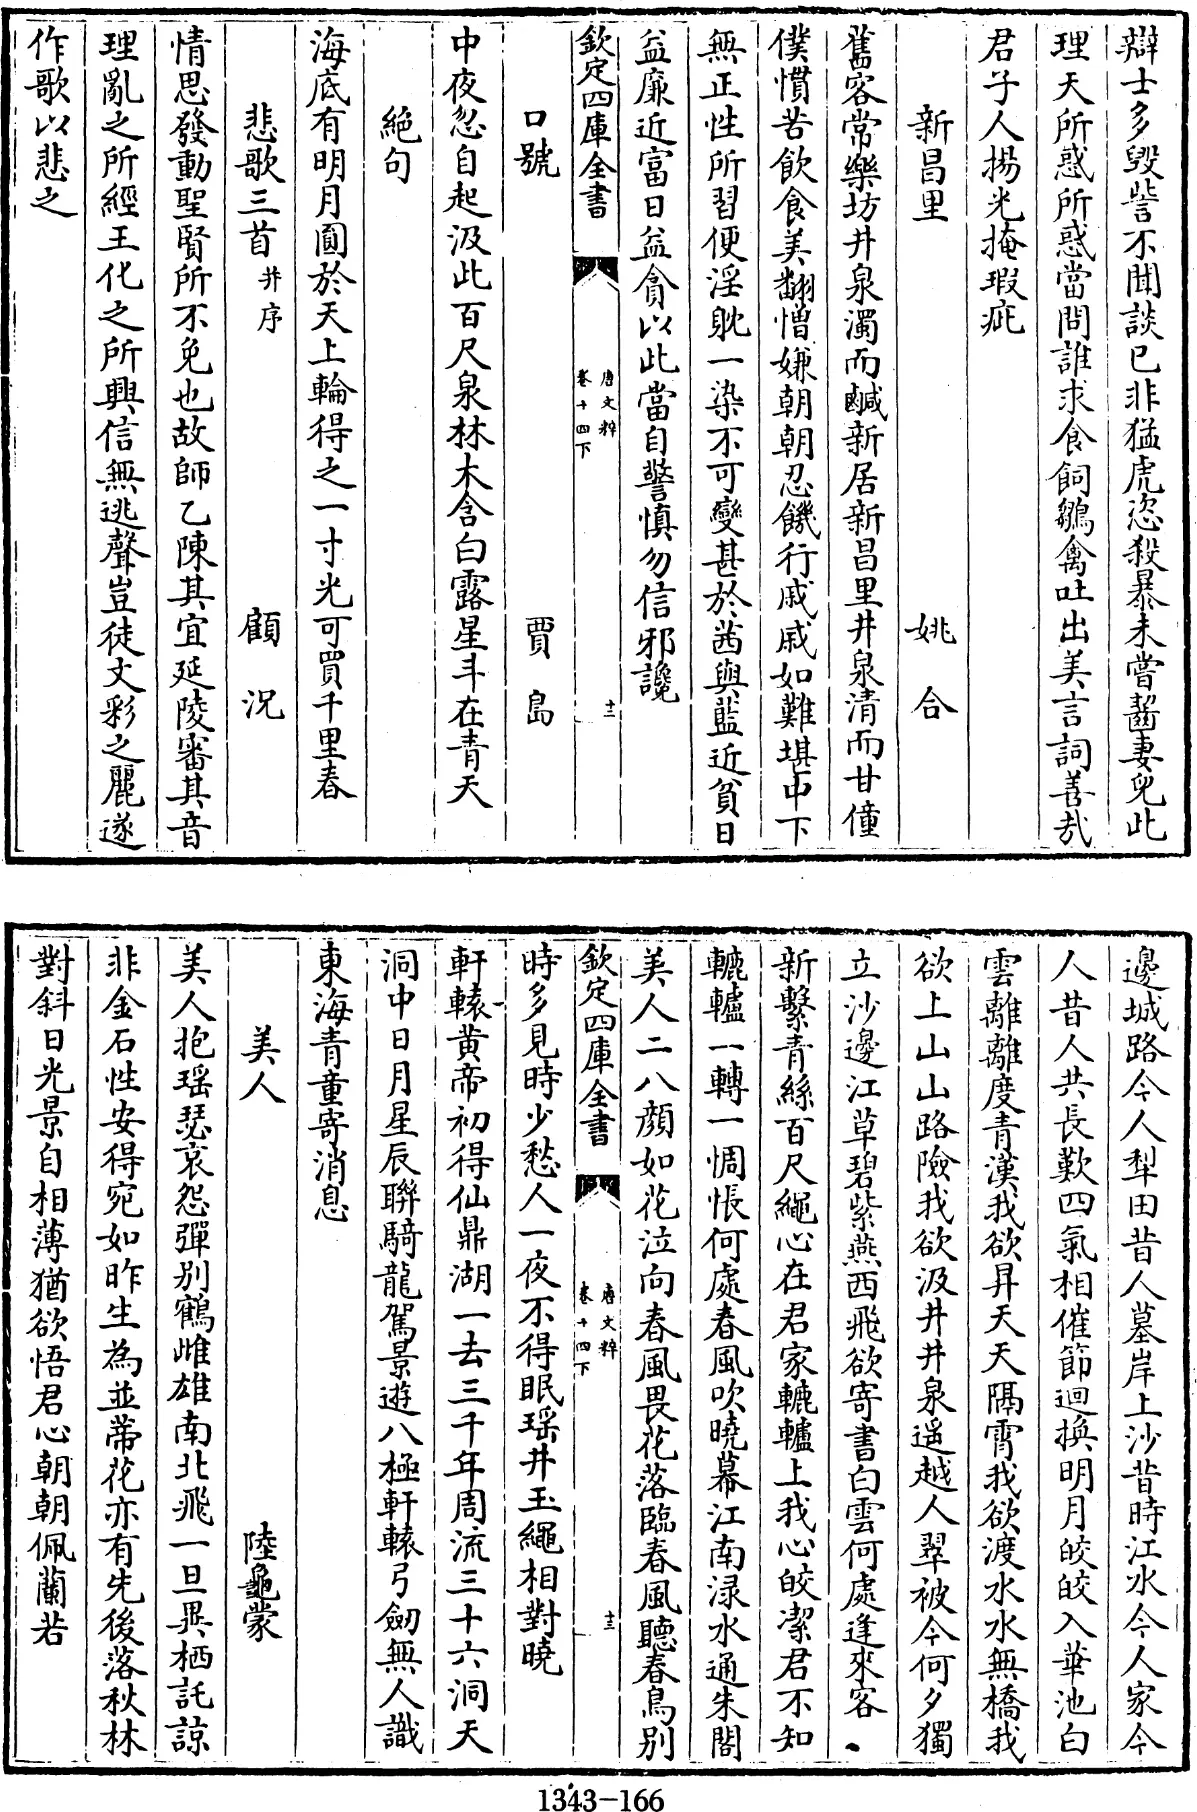 辯士多毀訾不聞談已非猛虎恣殺暴未嘗齧妻兒此
理天所惑所惑當問誰求食飼雛禽吐出美言詞善哉
君子人揚光掩瑕疵
新昌里 姚合
舊客常樂坊井泉濁而鹹新居新昌里井泉清而甘僮
僕慣苦飲食美翻憎嫌朝朝忍饑行戚戚如難堪中下
無正性所習便淫耽一染不可變甚於茜與藍近貧日
益廉近富日益貪以此當自警慎勿信邪讒
欽定四庫全書 唐文粹 卷十四下 十二
口號 賈島
中夜忽自起汲此百尺泉林木含白露星斗在青天
絕句
海底有明月圓於天上輪得之一寸光可買千里春
悲歌三首 并序 顧況
情思發動聖賢所不免也故師乙陳其宜延陵審其音
理亂之所經王化之所興信無逃聲豈徒文彩之麗遂
作歌以悲之
邊城路今人犁田昔人墓岸上沙昔時江水今人家今
人昔人共長歎四氣相催節迴換明月皎皎入華池白
雲離離度青漢我欲昇天天隔霄我欲渡水水無橋我
欲上山山路險我欲汲井井泉遥越人翠被今何夕獨
立沙邊江草碧紫燕西飛欲寄書白雲何處逢來客
新繫青絲百尺繩心在君家轆轤上我心皎潔君不知
轆轤一轉一惆悵何處春風吹曉幕江南渌水通朱閣
美人二八顔如花泣向春風畏花落臨春風聽春鳥别
欽定四庫全書 唐文粹 卷十四下 十三
時多見時少愁人一夜不得眠瑶井玉繩相對曉
軒轅黄帝初得仙鼎湖一去三千年周流三十六洞天
洞中日月星辰聯騎龍駕景遊八極軒轅弓劒無人識
東海青童寄消息
美人 陸龜蒙
美人抱瑶瑟哀怨彈别鶴雌雄南北飛一旦異栖託諒
非金石性安得宛如昨生為並蔕花亦有先後落秋林
對斜日光景自相薄猶欲悟君心朝朝佩蘭若
1343-166